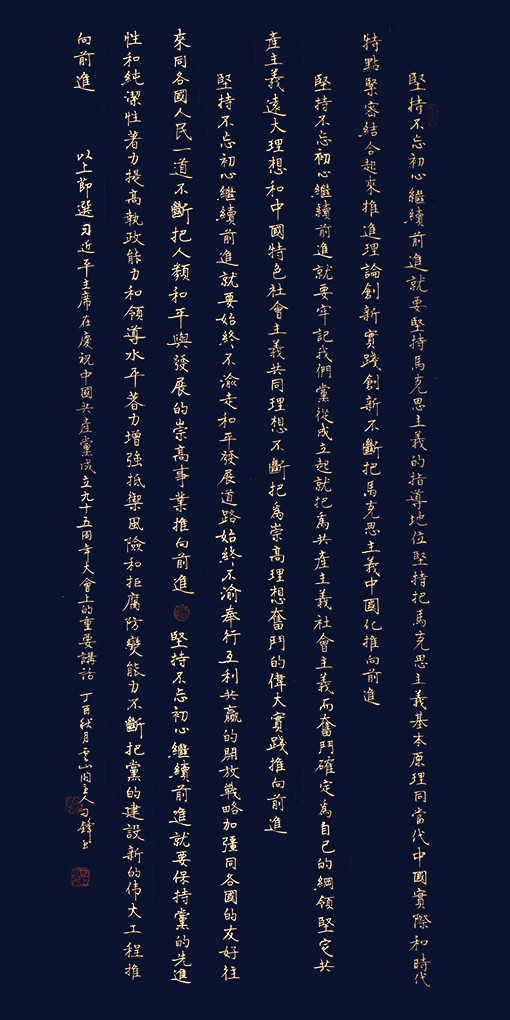 堅持不忘初心繼續前進就要堅持馬克思主義的指導地位堅持把馬克思主義基本原理同當代中國實際和時代
特點緊密結合起來推進理論創新實踐創新不斷把馬克思主義中國化推向前進
堅持不忘初心繼續前進就要牢記我們黨從成立起就把為共產主義社會主義而奮鬥確定為自己的綱領堅定共
產主義遠大理想和中國特色社會主義共同理想不斷把為崇高理想奮鬥的偉大實踐推向前進
堅持不忘初心繼續前進就要始終不渝走和平發展道路始終不渝奉行互利共贏的開放戰略加強同各國的友好往
來同各國人民一道不斷把人類和平與發展的崇高事業推向前進 堅持不忘初心繼續前進就要保持黨的先進
性和純潔性著力提高執政能力和領導水平著力增強抵禦風險和拒腐防變能力不斷把黨的建設新的伟大工程推
向前進 以上節選习近平主席在慶祝中國共產黨成立九十五周年大會上的重要講話 丁酉秋月